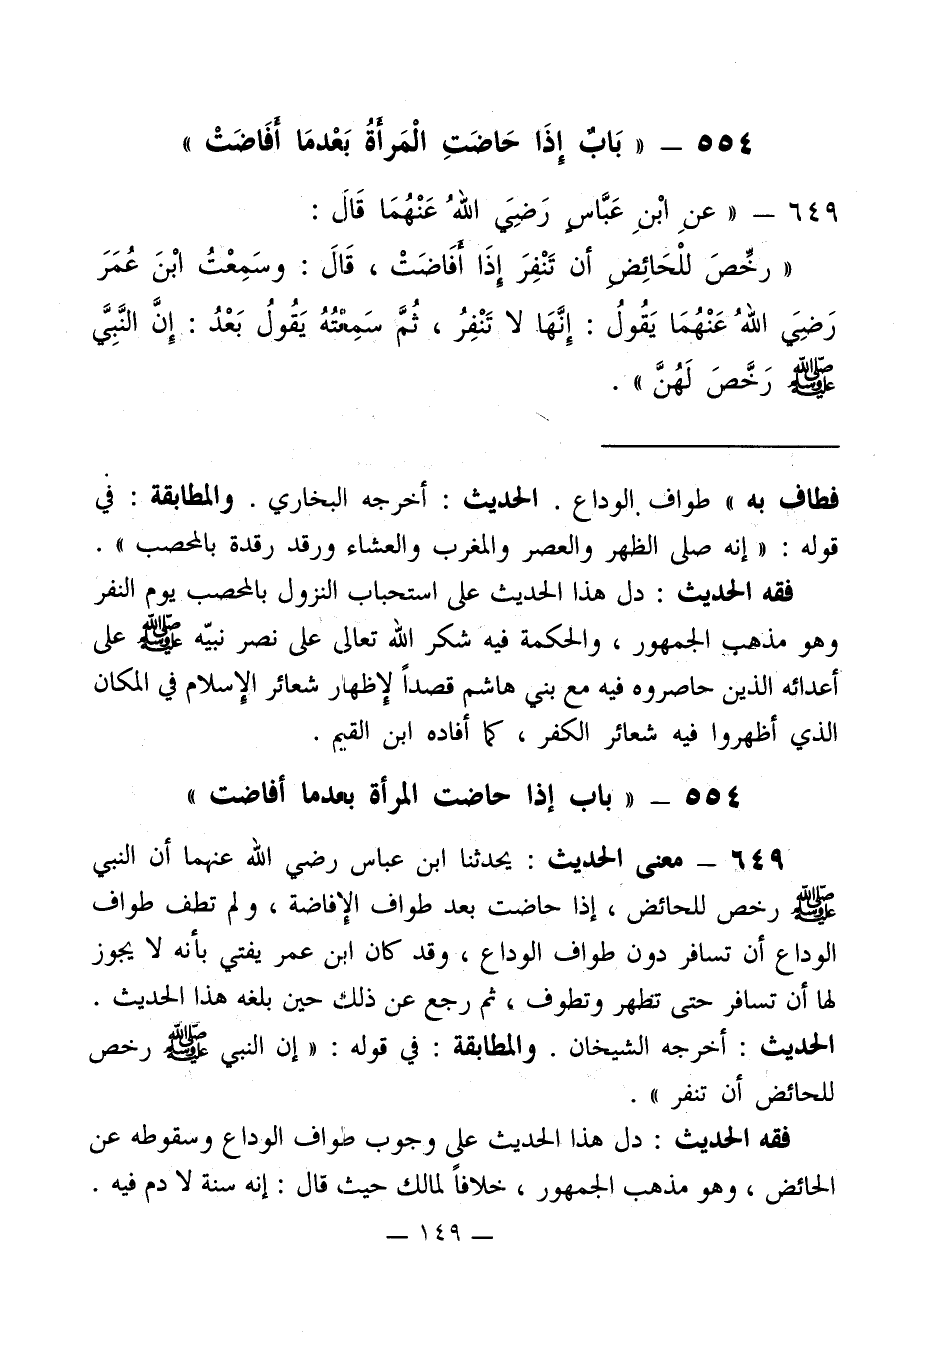 ٥٥٤ – « بَابٌ إِذَا حَاضَتِ الْمَرأَةُ بَعْدمَا أَفَاضَتْ »
٦٤٩ – « عنِ ابْنِ عَبَّاسٍ رَضِيَ اللهُ عَنْهُمَا قَالَ :
« رخِّصَ للْحَائِضِ أن تَنْفِرَ إِذَا أَفَاضَتْ ، قَالَ : وسَمِعْتُ ابْنَ عُمَرَ
رَضِيَ اللهُ عَنْهُمَا يَقُولُ : إِنَّهَا لا تَنْفِرُ ، ثُمَّ سَمِعْتُهُ يَقُولُ بَعْدُ : إِنَّ النَّبِيَّ
ﷺ رَخَّصَ لَهُنَّ » .
فطاف به » طواف الوداع . الحديث : أخرجه البخاري . والمطابقة : في
قوله : « إنه صلى الظهر والعصر والمغرب والعشاء ورقد رقدة بالمحصب » .
فقه الحديث : دل هذا الحديث على استحباب النزول بالمحصب يوم النفر
وهو مذهب الجمهور ، والحكمة فيه شكر الله تعالى على نصر نبيّه ﷺ على
أعدائه الذين حاصروه فيه مع بني هاشم قصداً لإظهار شعائر الإسلام في المكان
الذي أظهروا فيه شعائر الكفر ، كما أفاده ابن القيم .
٥٥٤ – « باب إذا حاضت المرأة بعدما أفاضت »
٦٤٩ – معنى الحديث : يحدثنا ابن عباس رضي الله عنهما أن النبي
ﷺ رخص للحائض ، إذا حاضت بعد طواف الإفاضة ، ولم تطف طواف
الوداع أن تسافر دون طواف الوداع ، وقد كان ابن عمر يفتي بأنه لا يجوز
لها أن تسافر حتى تطهر وتطوف ، ثم رجع عن ذلك حين بلغه هذا الحديث .
الحديث : أخرجه الشيخان . والمطابقة : في قوله : « إن النبي ﷺ رخص
للحائض أن تنفر » .
فقه الحديث : دل هذا الحديث على وجوب طواف الوداع وسقوطه عن
الحائض ، وهو مذهب الجمهور ، خلافاً لمالك حيث قال : إنه سنة لا دم فيه .
– ١٤٩ –